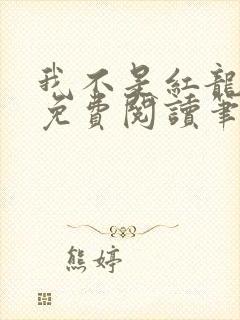 我不是紅龍
免費閱讀筆
熊婷